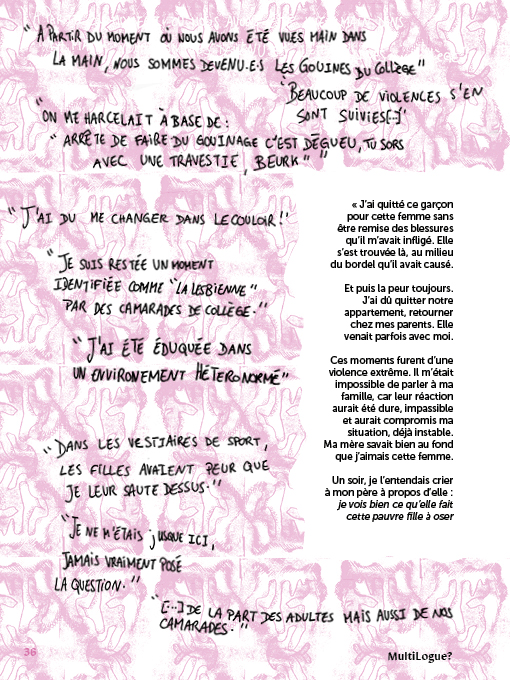 "À PARTIR DU MOMENT OÙ NOUS AVONS ÉTÉ VUES MAIN DANS
LA MAIN, NOUS SOMMES DEVENU.E.S LES GOUINES DU COLLÈGE"
"BEAUCOUP DE VIOLENCES S'EN
SONT SUIVIES[...]"
"ON ME HARCELAIT À BASE DE:
"ARRÊTE DE FAIRE DU GOUINAGE C'EST DÉGUEU, TU SORS
AVEC UNE TRAVESTIE, BEURK" "
"J'AI DU ME CHANGER DANS LE COULOIR!"
"JE SUIS RESTÉE UN MOMENT
IDENTIFIÉE COMME "LA LESBIENNE"
PAR DES CAMARADES DE COLLÈGE."
"J'AI ÉTÉ ÉDUQUÉE DANS
UN ENVIRONEMENT HÉTERONORMÉ"
"DANS LES VESTIAIRES DE SPORT,
LES FILLES AVAIENT PEUR QUE
JE LEUR SAUTE DESSUS."
"JE NE M'ÉTAIS JUSQUE ICI,
JAMAIS VRAIMENT POSÉ
LA QUESTION."
"[...] DE LA PART DES ADULTES MAIS AUSSI DE NOS
CAMARADES."
« J'ai quitté ce garçon
pour cette femme sans
être remise des blessures
qu'il m'avait infligé. Elle
s'est trouvée là, au milieu
du bordel qu'il avait causé.
Et puis la peur toujours.
J'ai dû quitter notre
appartement, retourner
chez mes parents. Elle
venait parfois avec moi.
Ces moments furent d'une
violence extrême. Il m'était
impossible de parler à ma
famille, car leur réaction
aurait été dure, impassible
et aurait compromis ma
situation, déjà instable.
Ma mère savait bien au fond
que j'aimais cette femme.
Un soir, je l'entendais crier
à mon père à propos d'elle :
je vois bien ce qu'elle fait
cette pauvre fille à oser
36
MultiLogue?